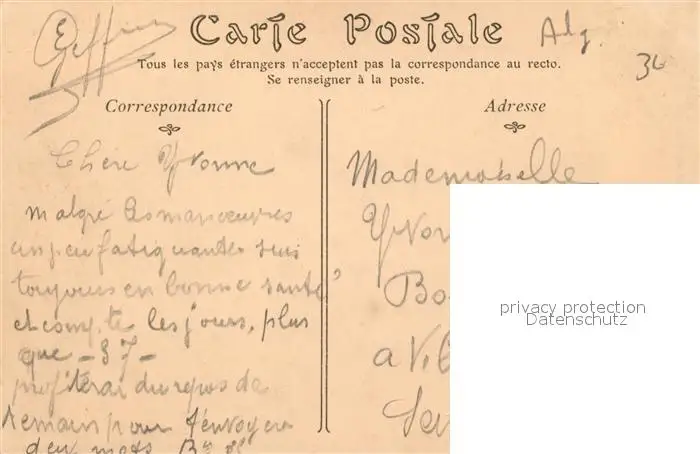 Carte Postale
Tous les pays étrangers n'acceptent pas la correspondance au recto.
Se renseigner à la poste.
Correspondance
Chère Yvonne
malgré les manœuvres
un peu fatiguantes suis
toujours en bonne santé
et compte les jours, plus
que - 37 -
profiterai du repos de
demain pour t'envoyer
deux mots.
Adresse
Mademoiselle
Yvon
Bo
a Vil
privacy protection
Datenschutz